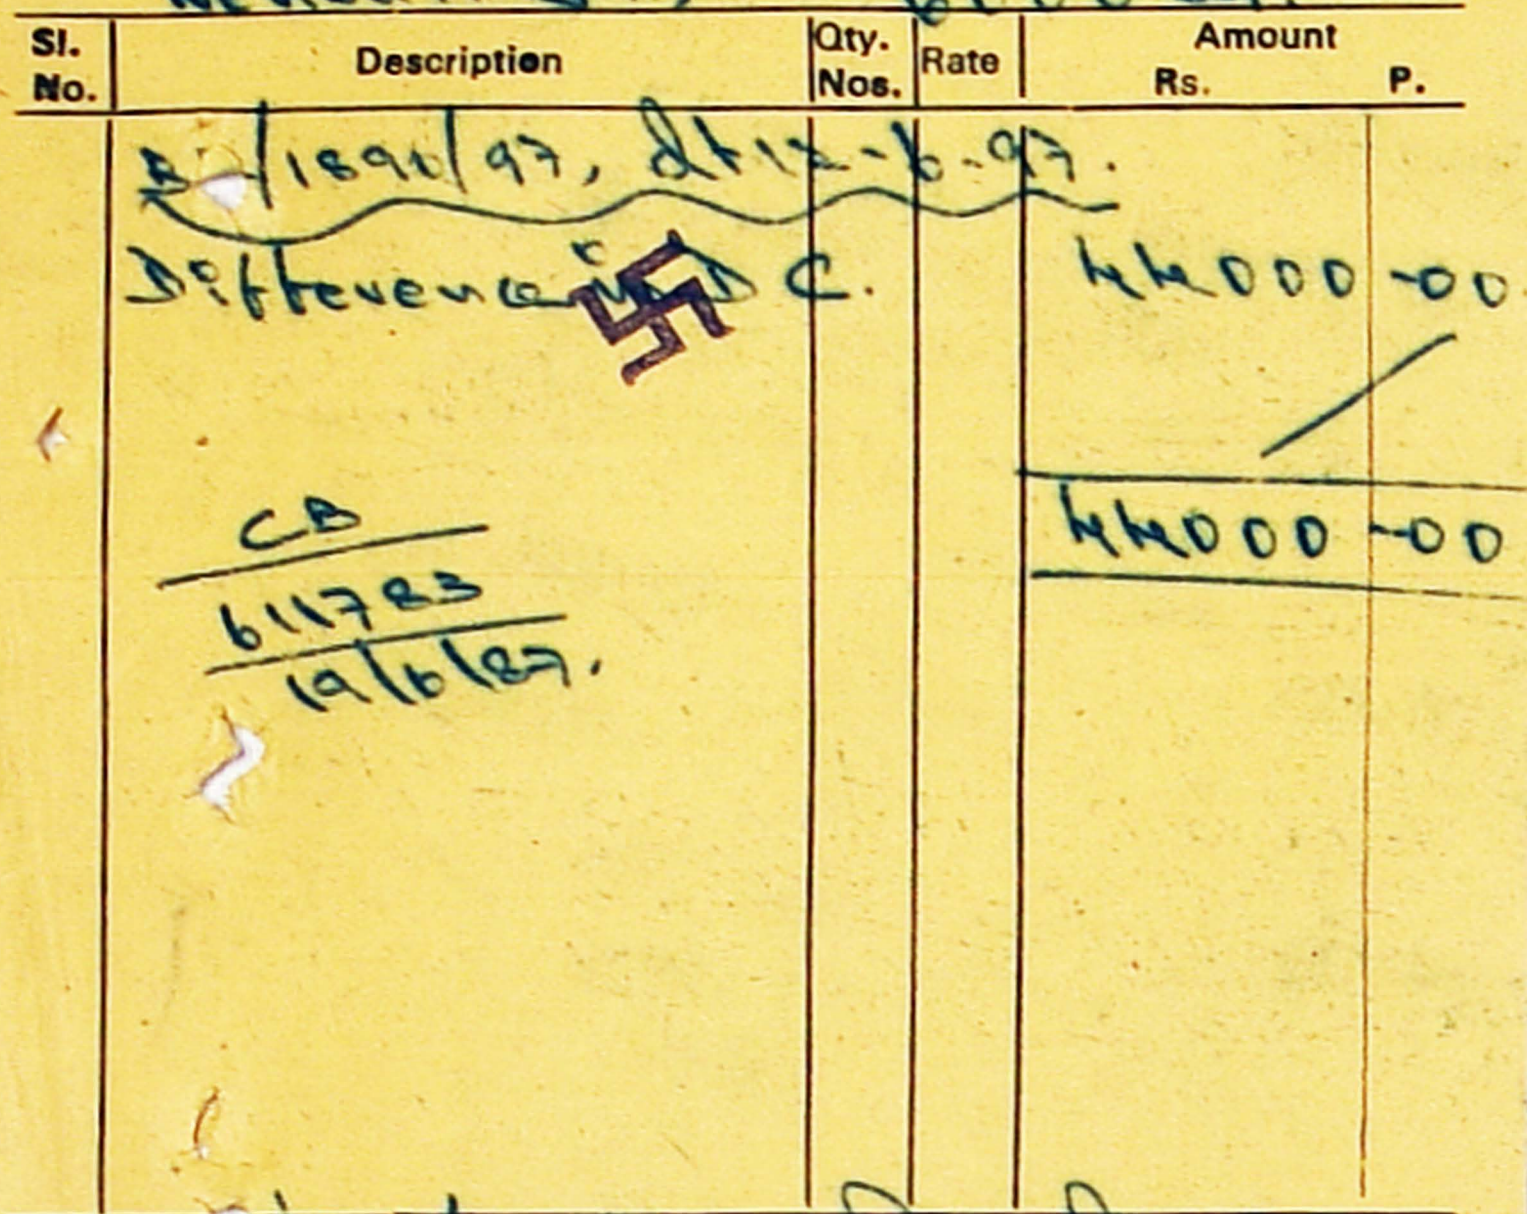 Sl. No. Description Qty. Nos. Rate Amount Rs. P.
/1891/97, dt 12-6-97.
Difference in D C. 44000-00
44000-00
CB
611783
19/6/87.